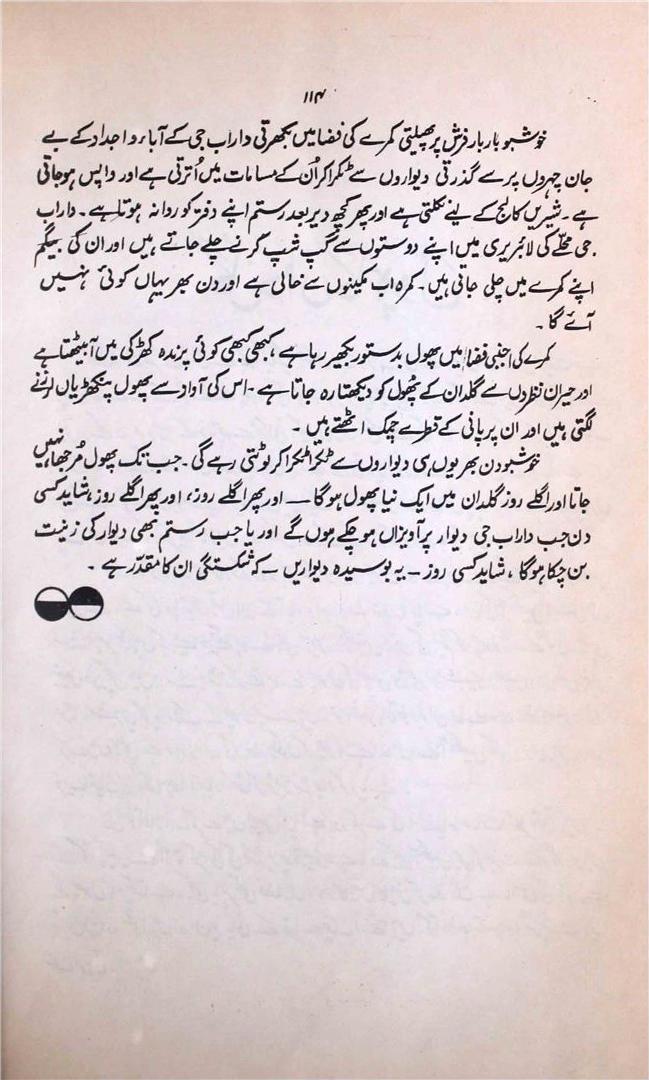 ۱۱۴
خوشبو بار بار فرش پر پھیلتی کمرے کی فضا میں بکھرتی داراب جی کے آباء و اجداد کے بے
جان چہروں پر سے گذرتی دیواروں سے ٹکرا کر اُن کے مسامات میں اُترتی ہے اور واپس ہو جاتی
ہے ۔ شیریں کالج کے لیے نکلتی ہے اور پھر کچھ دیر بعد رستم اپنے دفتر کو روانہ ہوتا ہے ۔ داراب
جی محلّے کی لائبریری میں اپنے دوستوں سے گپ شپ کرنے چلے جاتے ہیں اور ان کی بیگم
اپنے کمرے میں چلی جاتی ہیں ۔ کمرہ اب مکینوں سے خالی ہے اور دن بھر یہاں کوئی نہیں
آئے گا ۔
کمرے کی اجنبی فضا میں پھول بدستور بکھیر رہا ہے ، کبھی کبھی کوئی پرندہ کھڑکی میں آ بیٹھتا ہے
اور حیران نظروں سے گلدان کے پھول کو دیکھتا رہ جاتا ہے ۔ اس کی آواز سے پھول پنکھڑیاں لرزنے
لگتی ہیں اور ان پر پانی کے قطرے چمک اٹھتے ہیں ۔
خوشبو دن بھر یوں ہی دیواروں سے ٹکرا ٹکرا کر لوٹتی رہے گی ۔ جب تک پھول مُرجھا نہیں
جاتا اور اگلے روز گلدان میں ایک نیا پھول ہو گا — اور پھر اگلے روز ، اور پھر اگلے روز ، شاید کسی
دن جب داراب جی دیوار پر آویزاں ہو چکے ہوں گے اور یا جب رستم بھی دیوار کی زینت
بن چکا ہو گا ، شاید کسی روز — یہ بوسیدہ دیواریں — کہ شکستگی ان کا مقدّر ہے ۔